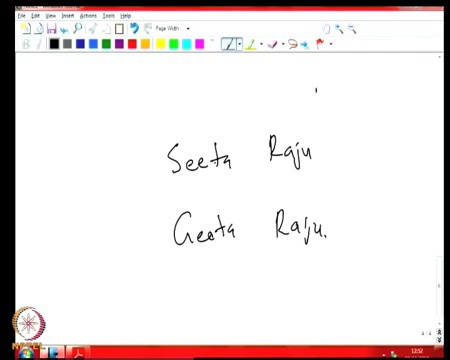 File Edit View Insert Actions Tools Help
Page Width
Seeta Raju
Geeta Raju.
NPTEL
12:52